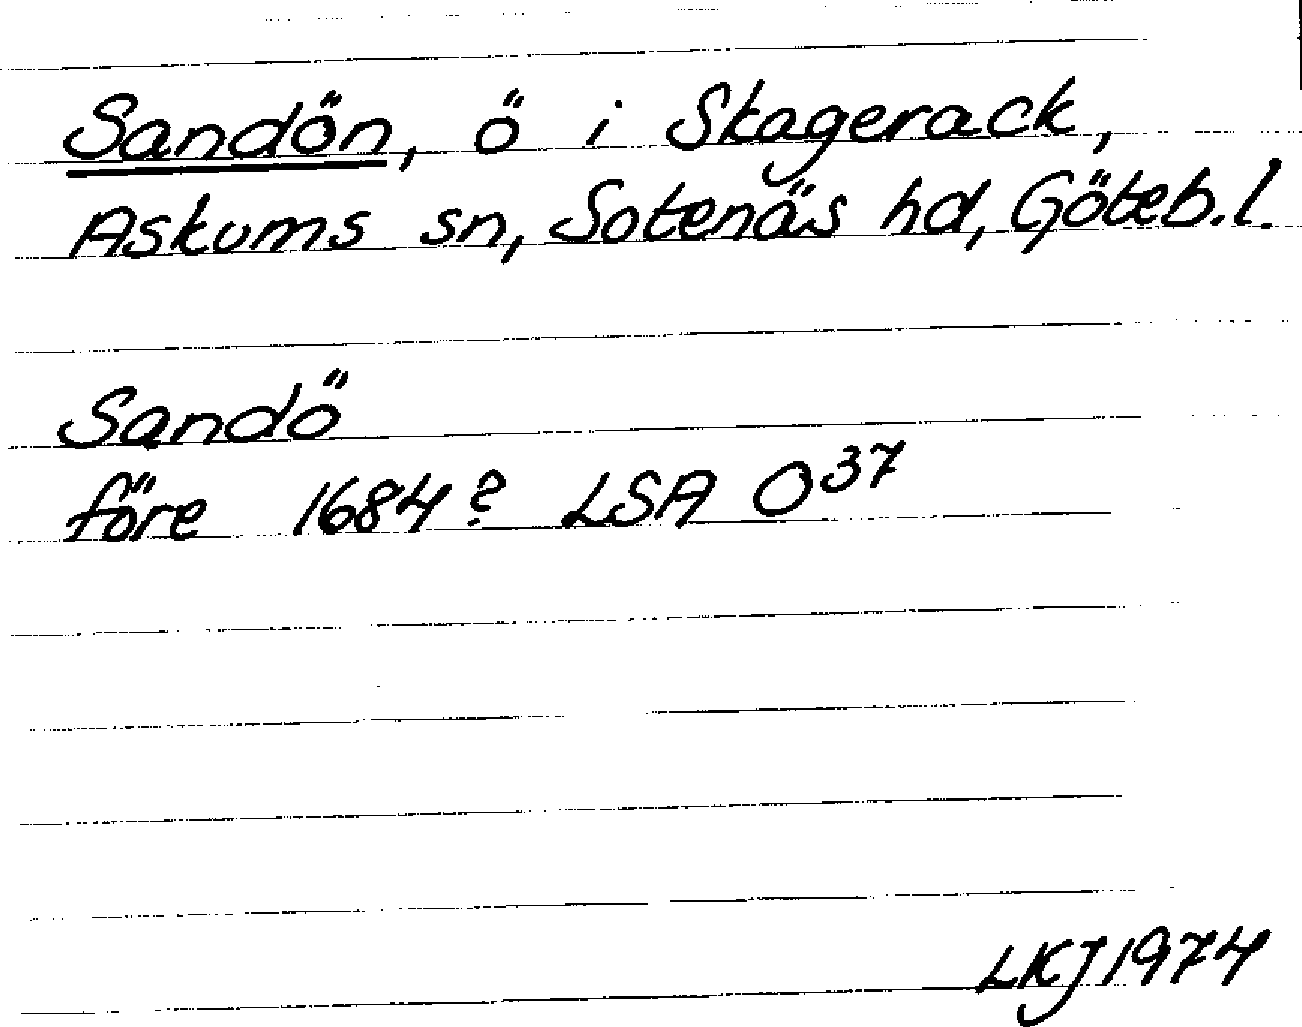 Sandön, ö i Skagerack,
Askums sn, Sotenäs hd, Göteb.l.
Sandö
före 1684? LSA O³⁷
LKJ 1974